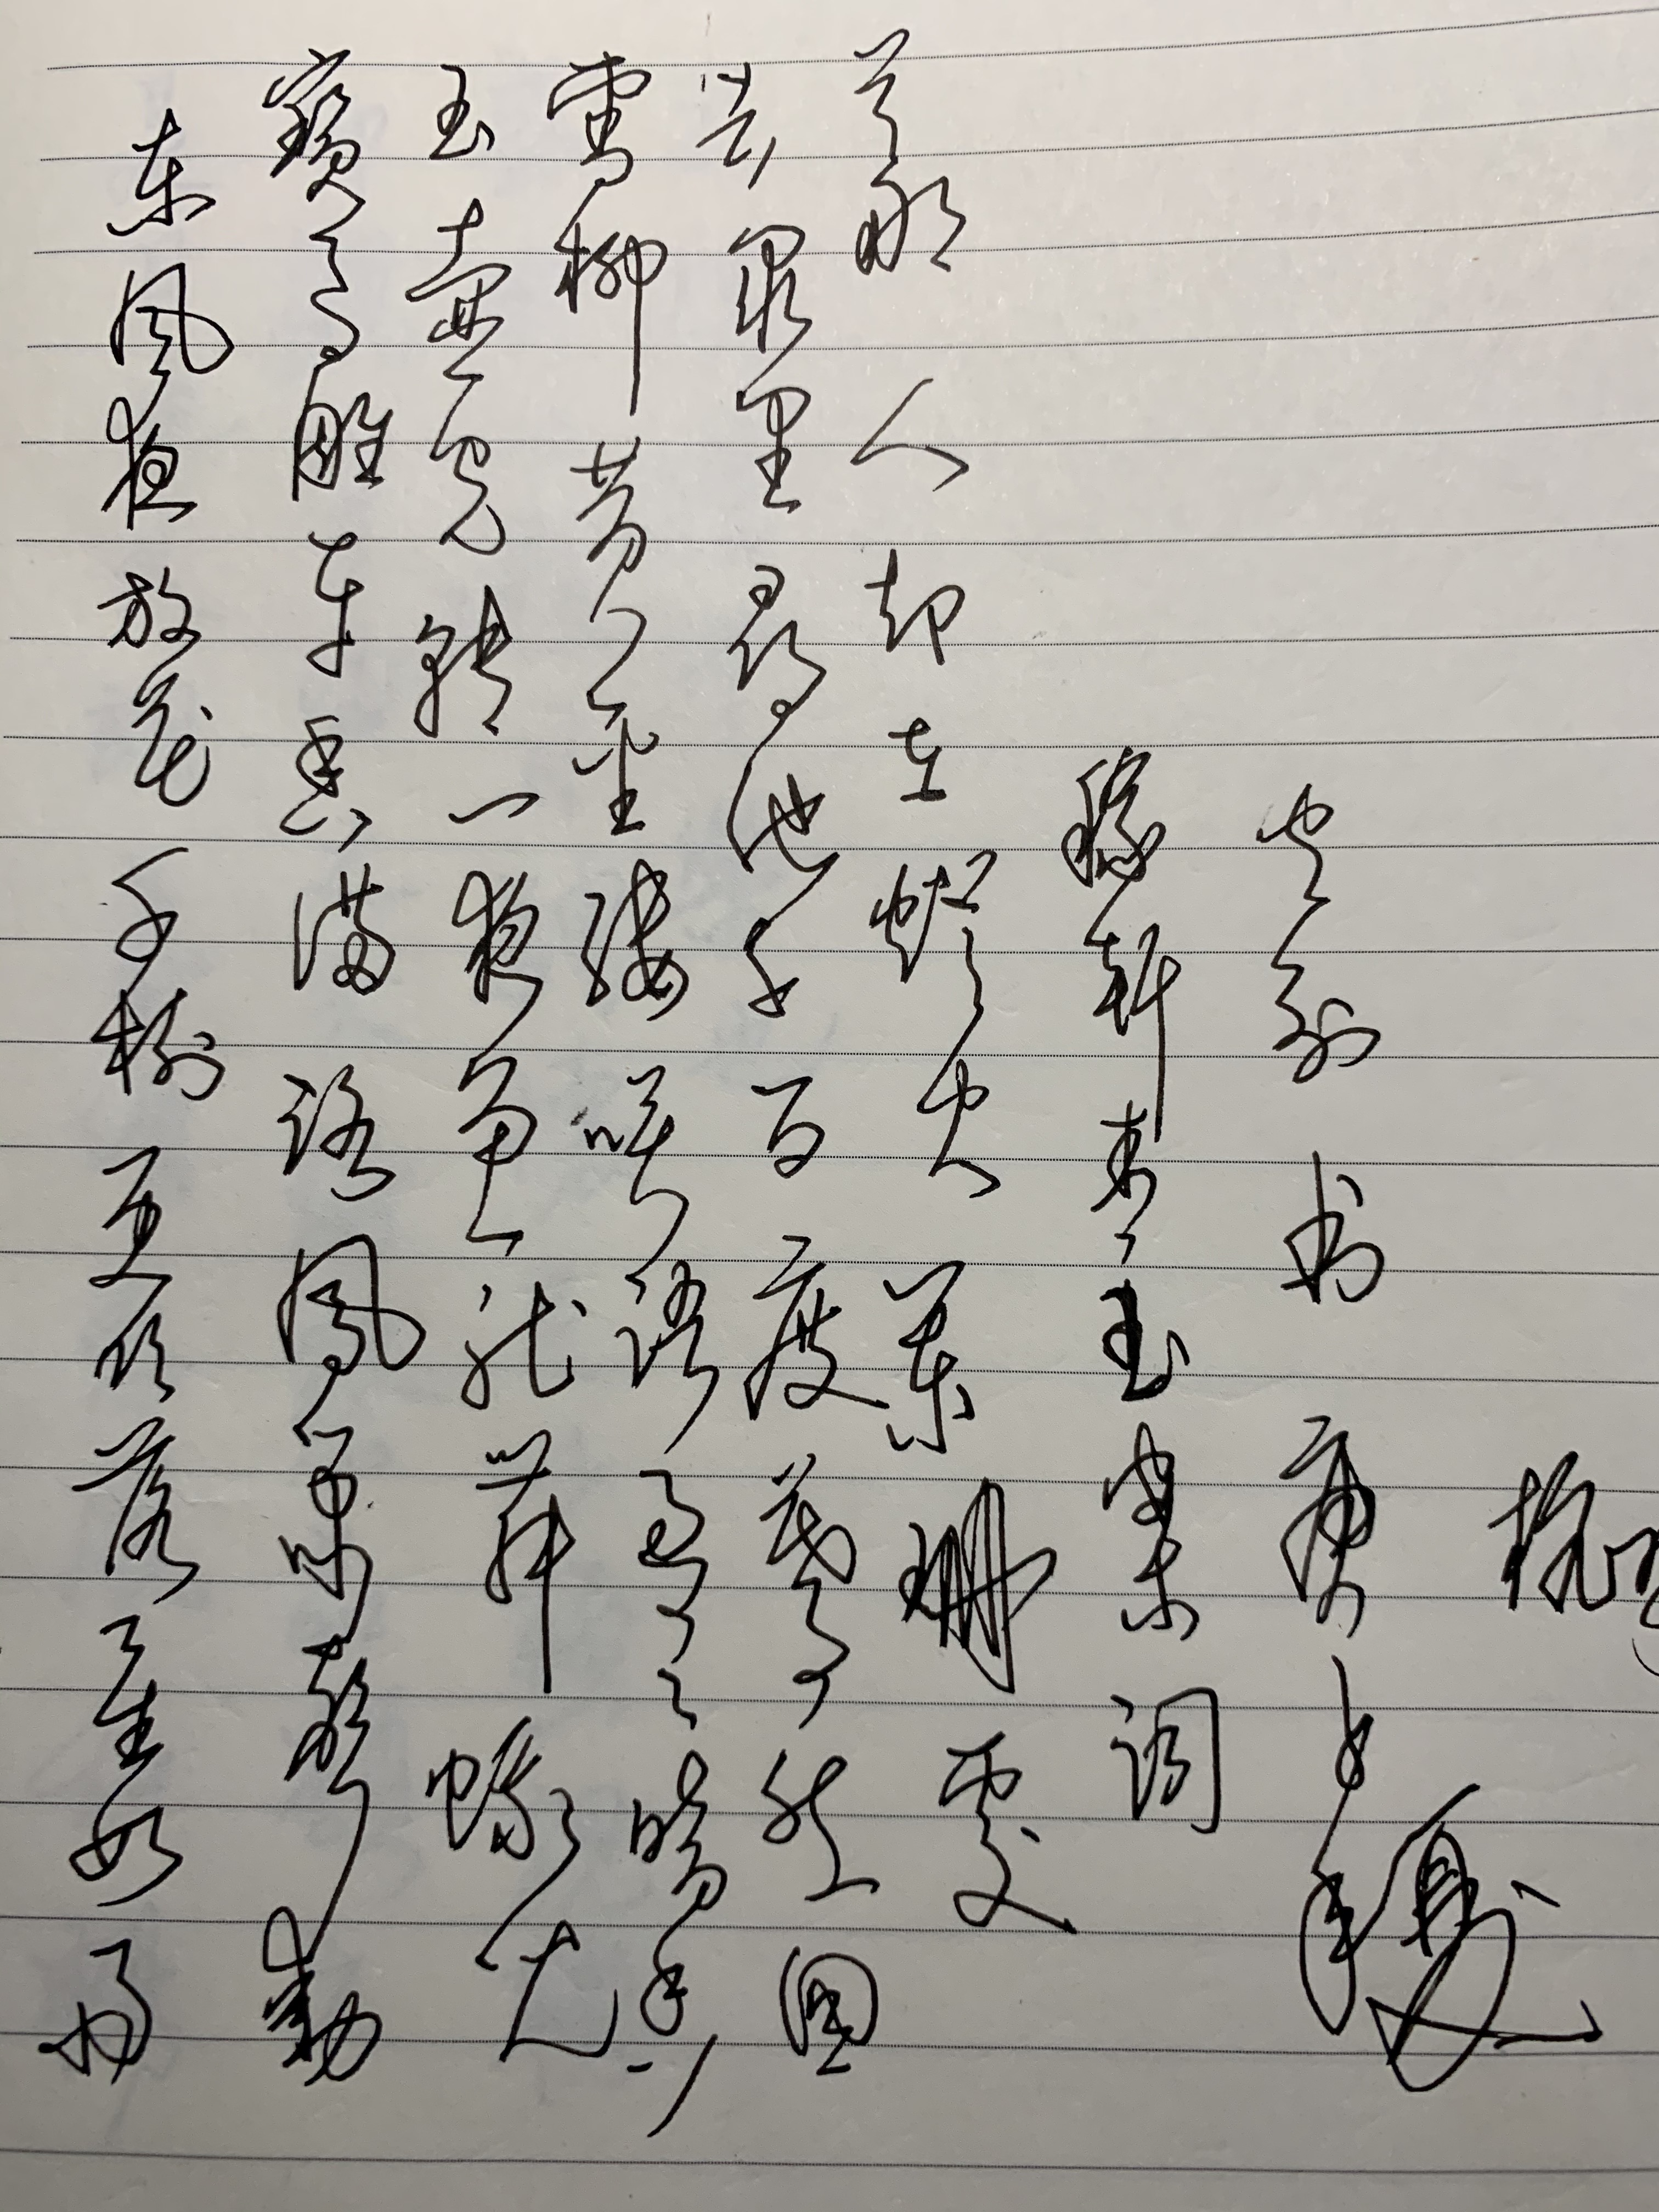 东风夜放花千树更吹落星如雨
宝马雕车香满路凤箫声动
玉壶光转一夜鱼龙舞蛾儿
雪柳黄金缕笑语盈盈暗香
去众里寻他千百度蓦然回
首那人却在灯火阑珊处
稼轩青玉案词
书